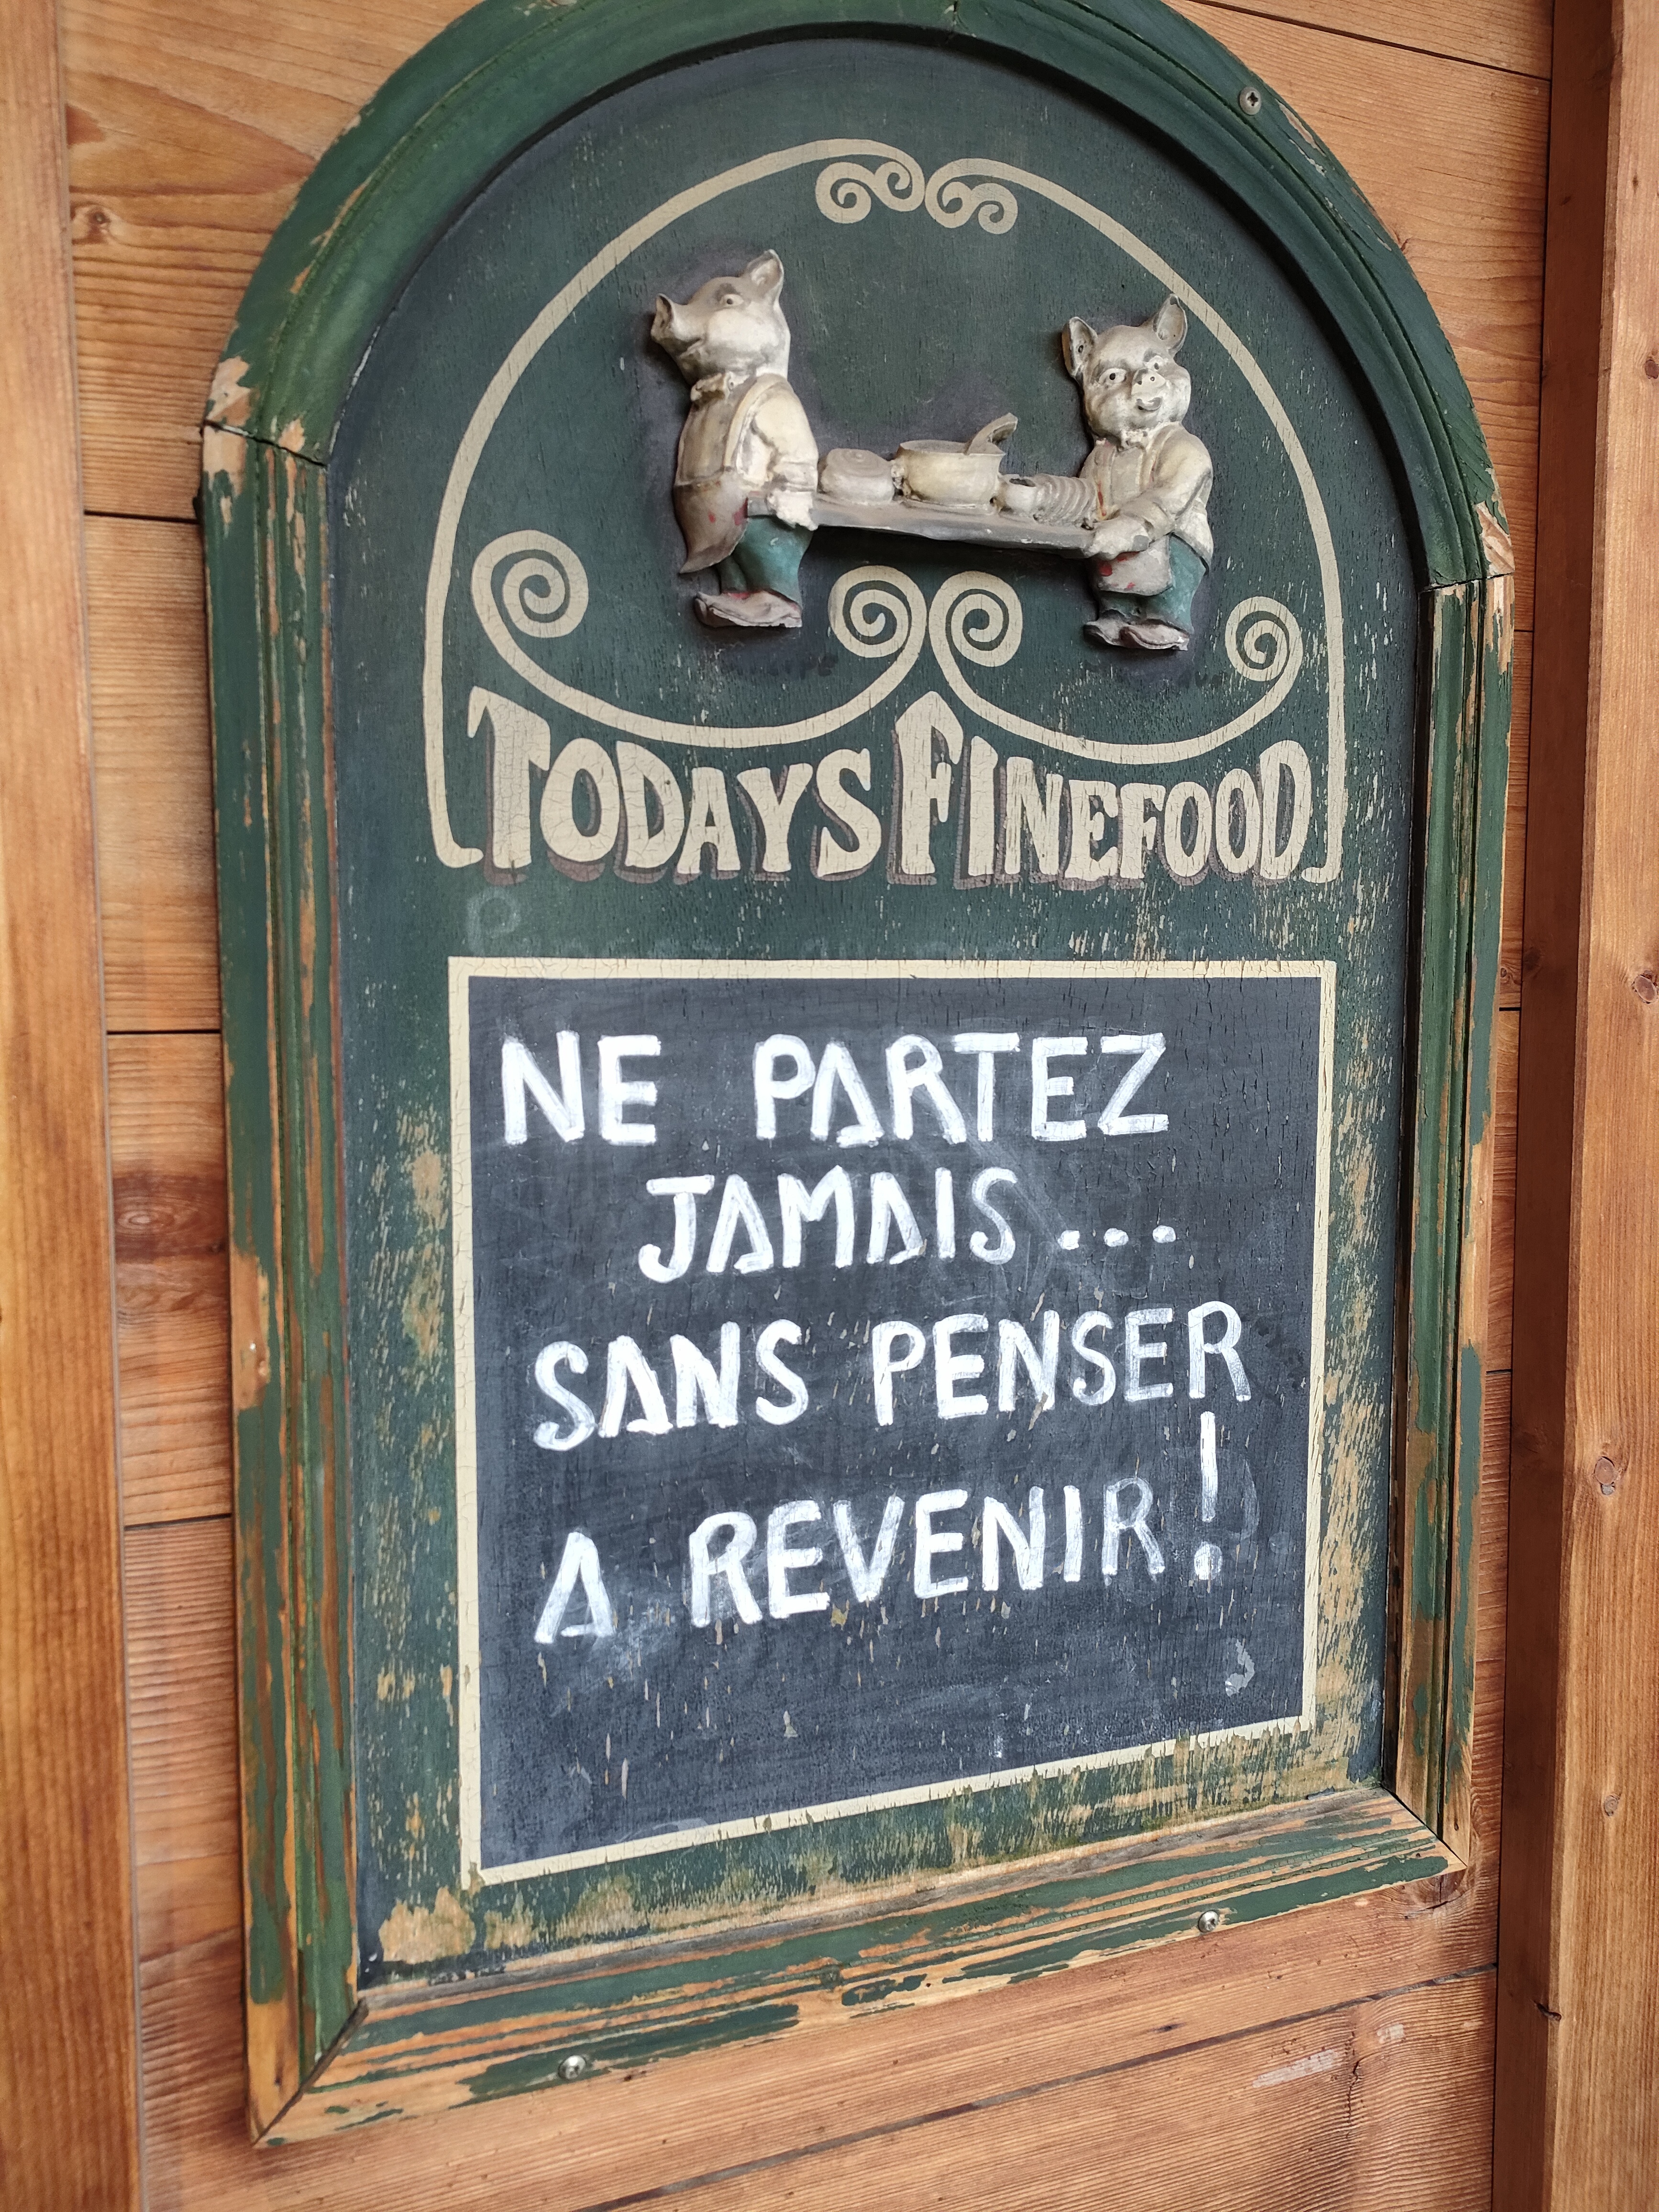 TODAYS FINEFOOD
NE PARTEZ
JAMAIS...
SANS PENSER
A REVENIR!